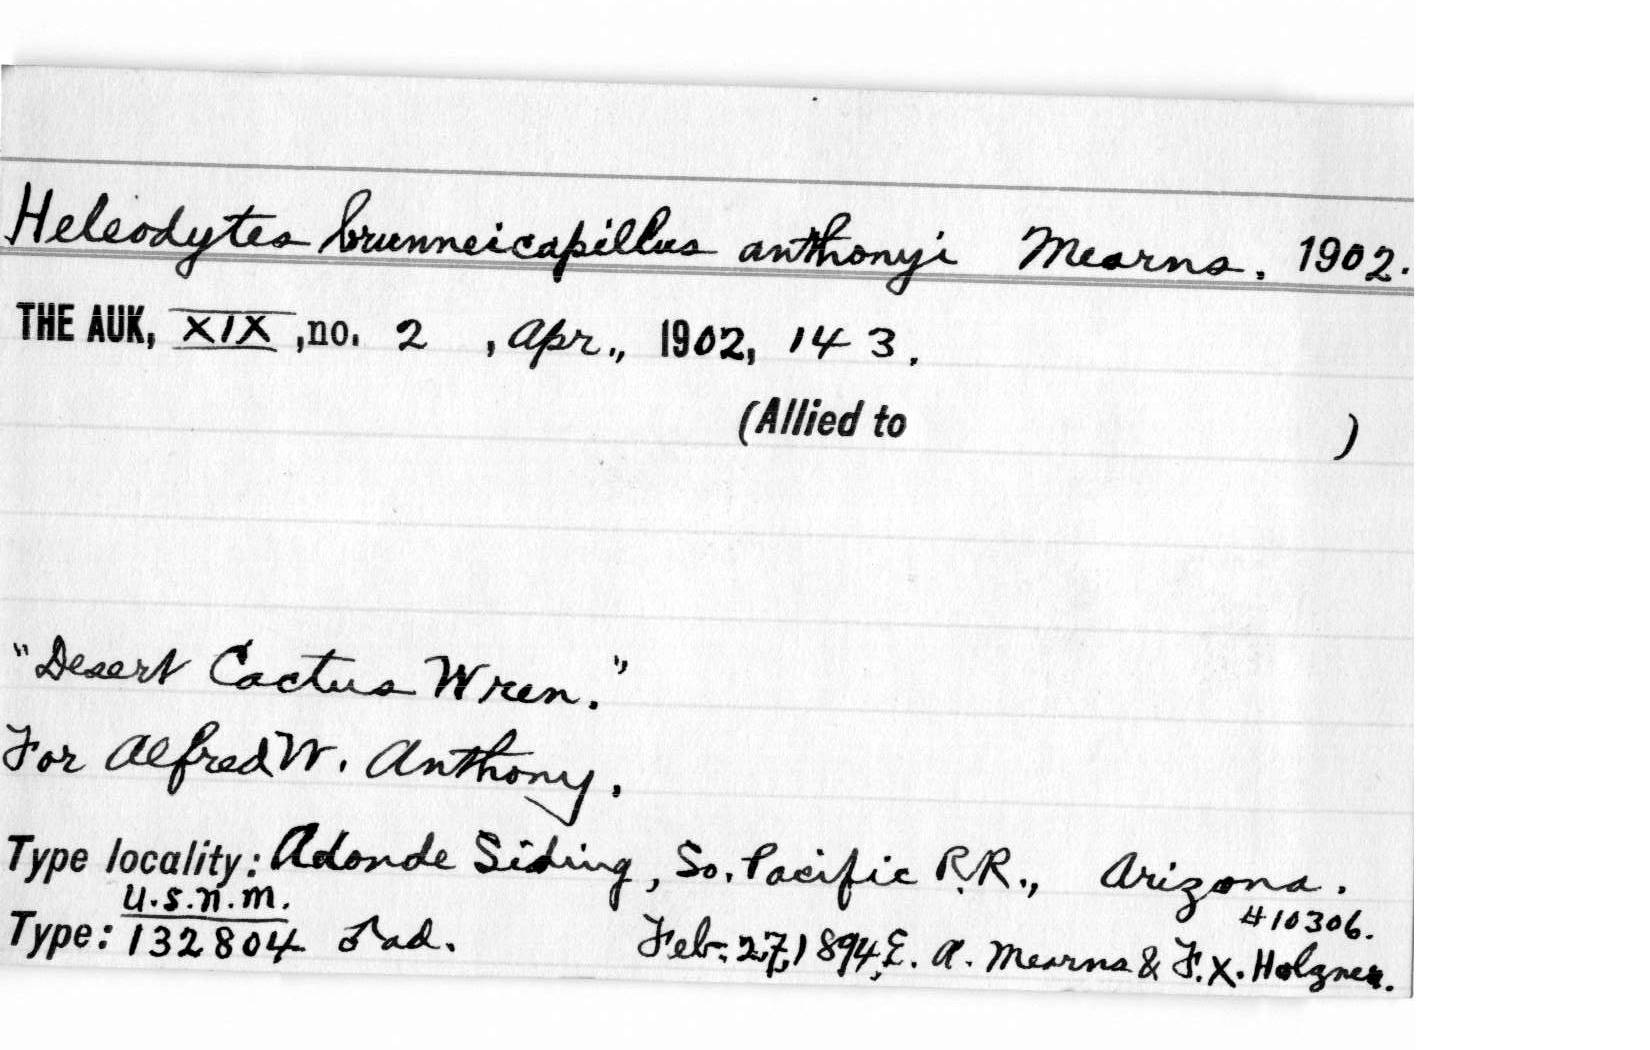 Heleodytes brunneicapillus anthonyi Mearns. 1902.
THE AUK, XIX, no. 2, Apr., 1902, 143.
(Allied to )
"Desert Cactus Wren."
For Alfred W. Anthony.
Type locality: Adonde Siding, So. Pacific R.R., Arizona.
U.S.N.M. #10306.
Type: 132804 ♂ ad. Feb. 27, 1894, E. A. Mearns & F. X. Holzner.